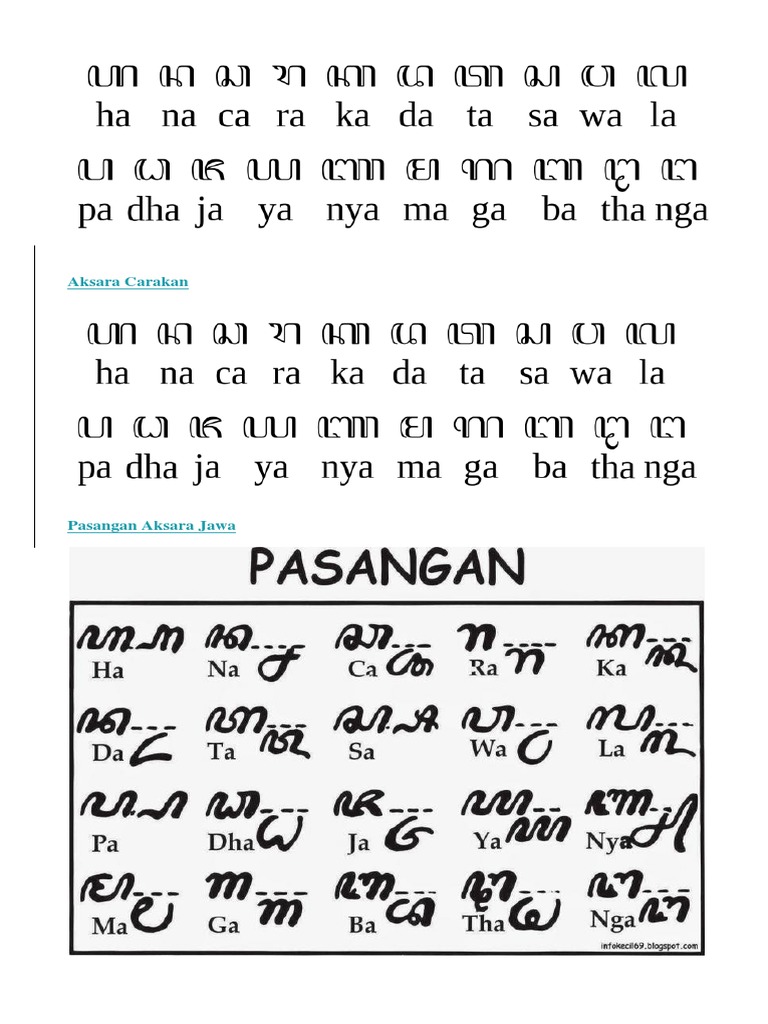 ꦲ ꦤ ꦕ ꦫ ꦏ ꦢ ꦠ ꦱ ꦮ ꦭ
ha na ca ra ka da ta sa wa la
ꦥ ꦝ ꦗ ꦪ ꦚ ꦩ ꦒ ꦧ ꦛ ꦔ
pa dha ja ya nya ma ga ba tha nga
Aksara Carakan
ꦲ ꦤ ꦕ ꦫ ꦏ ꦢ ꦠ ꦱ ꦮ ꦭ
ha na ca ra ka da ta sa wa la
ꦥ ꦝ ꦗ ꦪ ꦚ ꦩ ꦒ ꦧ ꦛ ꦔ
pa dha ja ya nya ma ga ba tha nga
Pasangan Aksara Jawa
PASANGAN
ꦲ ꧀ꦲ ꦤ ꧀ꦤ ꦕ ꧀ꦕ ꦫ ꧀ꦫ ꦏ ꧀ꦏ
Ha Na Ca Ra Ka
ꦢ ꧀ꦢ ꦠ ꧀ꦠ ꦱ ꧀ꦱ ꦮ ꧀ꦮ ꦭ ꧀ꦭ
Da Ta Sa Wa La
ꦥ ꧀ꦥ ꦝ ꧀ꦝ ꦗ ꧀ꦗ ꦪ ꧀ꦪ ꦚ ꧀ꦚ
Pa Dha Ja Ya Nya
ꦩ ꧀ꦩ ꦒ ꧀ꦒ ꦧ ꧀ꦧ ꦛ ꧀ꦛ ꦔ ꧀ꦔ
Ma Ga Ba Tha Nga
infokecil69.blogspot.com